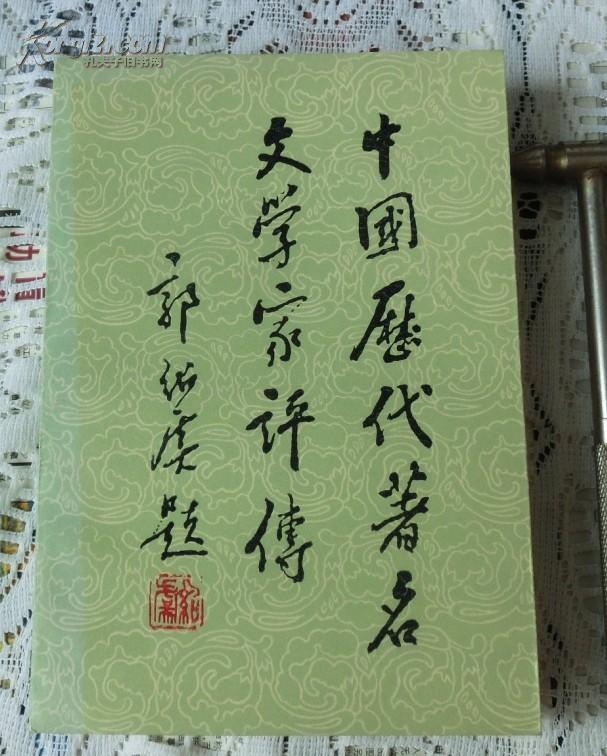 中國歷代著名
文学家評傳
郭紹虞題
紹虞
Kongfz.com
孔夫子旧书网